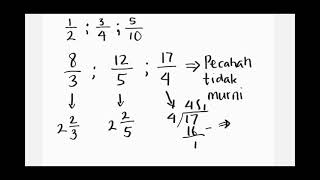 1/2 ; 3/4 ; 5/10
8/3 ; 12/5 ; 17/4 ⇒ Pecahan
tidak
murni
↓ ↓ ↓
2 2/3 2 2/5 4 17
16
1
⇒